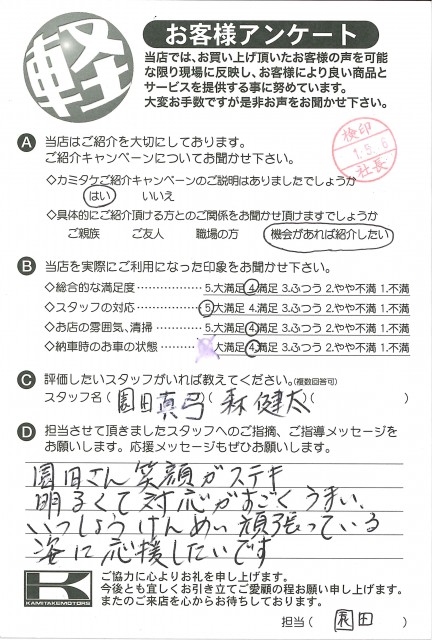 軽
お客様アンケート
当店では、お買い上げ頂いたお客様の声を可能
な限り現場に反映し、お客様により良い商品と
サービスを提供する事に努めています。
大変お手数ですが是非お声をお聞かせ下さい。
検印
1.9.6
社長
A 当店はご紹介を大切にしております。
ご紹介キャンペーンについてお聞かせ下さい。
◇カミタケご紹介キャンペーンのご説明はありましたでしょうか
はい いいえ
◇具体的にご紹介頂ける方とのご関係をお聞かせ頂けますでしょうか
ご親族 ご友人 職場の方 機会があれば紹介したい
B 当店を実際にご利用になった印象をお聞かせ下さい。
◇総合的な満足度 ………… 5.大満足 4.満足 3.ふつう 2.やや不満 1.不満
◇スタッフの対応 ………… 5.大満足 4.満足 3.ふつう 2.やや不満 1.不満
◇お店の雰囲気、清掃 ……… 5.大満足 4.満足 3.ふつう 2.やや不満 1.不満
◇納車時のお車の状態 ……… 大満足 4.満足 3.ふつう 2.やや不満 1.不満
C 評価したいスタッフがいれば教えてください。(複数回答可)
スタッフ名 ( 園田真弓 )( 森健太 )( )
D 担当させて頂きましたスタッフへのご指摘、ご指導メッセージを
お願いします。応援メッセージもぜひお願いします。
園田さん笑顔がステキ
明るくて対応がすごくうまい、
いっしょうけんめい頑張っている
に応援したいです
K
KAMITAKEMOTORS
ご協力に心よりお礼を申し上げます。
今後とも宜しくお引き立てご愛顧の程お願い申し上げます。
またのご来店を心からお待ちしております。
担当 ( 園田 )